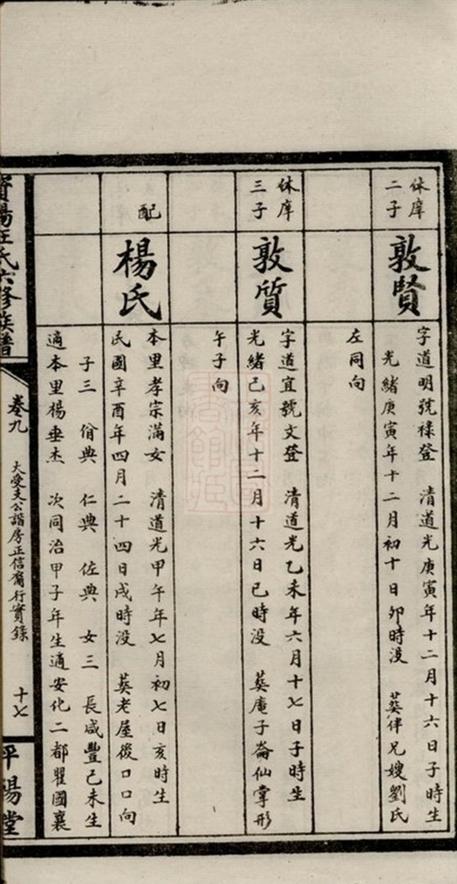 休庠
二子
敦賢
字道明號祿登　清道光庚寅年十二月十六日子時生
光緒庚寅年十二月初十日卯時沒　葬伴兄嫂劉氏
左同向
休庠
三子
敦質
字道宜號文登　清道光乙未年六月十七日子時生
光緒己亥年十二月十六日巳時沒　葬庵子崙仙掌形
午子向
配
楊氏
本里孝宗滿女　清道光甲午年七月初七日亥時生
民國辛酉年四月二十四日戌時沒　葬老屋後口口向
子三　佾典　仁典　佐典　女三　長咸豐己未生
適本里楊垂杰　次同治甲子年生適安化二都瞿國襄
資陽汪氏六修族譜
卷九
大受支公諧房正信裔行實錄
十七
平陽堂